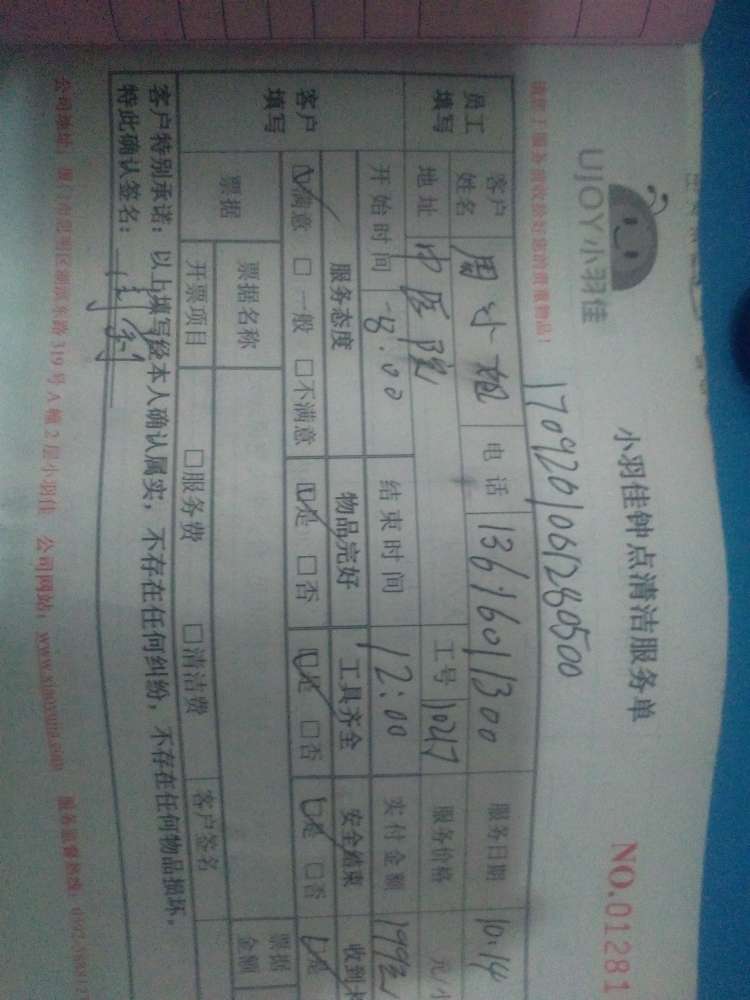 UJOY小羽佳
小羽佳钟点清洁服务单
NO.01281
1709201061280500
员工填写
客户姓名 周小姐 电话 13616011300 服务日期 10.14
地址 中医院 工号 服务价格 元/小
开始时间 8:00 结束时间 12:00 实付金额
客户填写
服务态度 物品完好 工具齐全 安全结束
☑满意 □一般 □不满意 ☑是 □否 ☑是 □否 ☑是 □否 ☑是
票据 票据名称 票据金额
开票项目 □服务费 □清洁费 客户签名
客户特别承诺:以上填写经本人确认属实,不存在任何纠纷,不存在任何物品损坏,
特此确认签名:
公司地址:厦门市思明区湖滨东路319号A幢2层小羽佳 公司网站:www.xiaoyujia.com 服务监督热线: